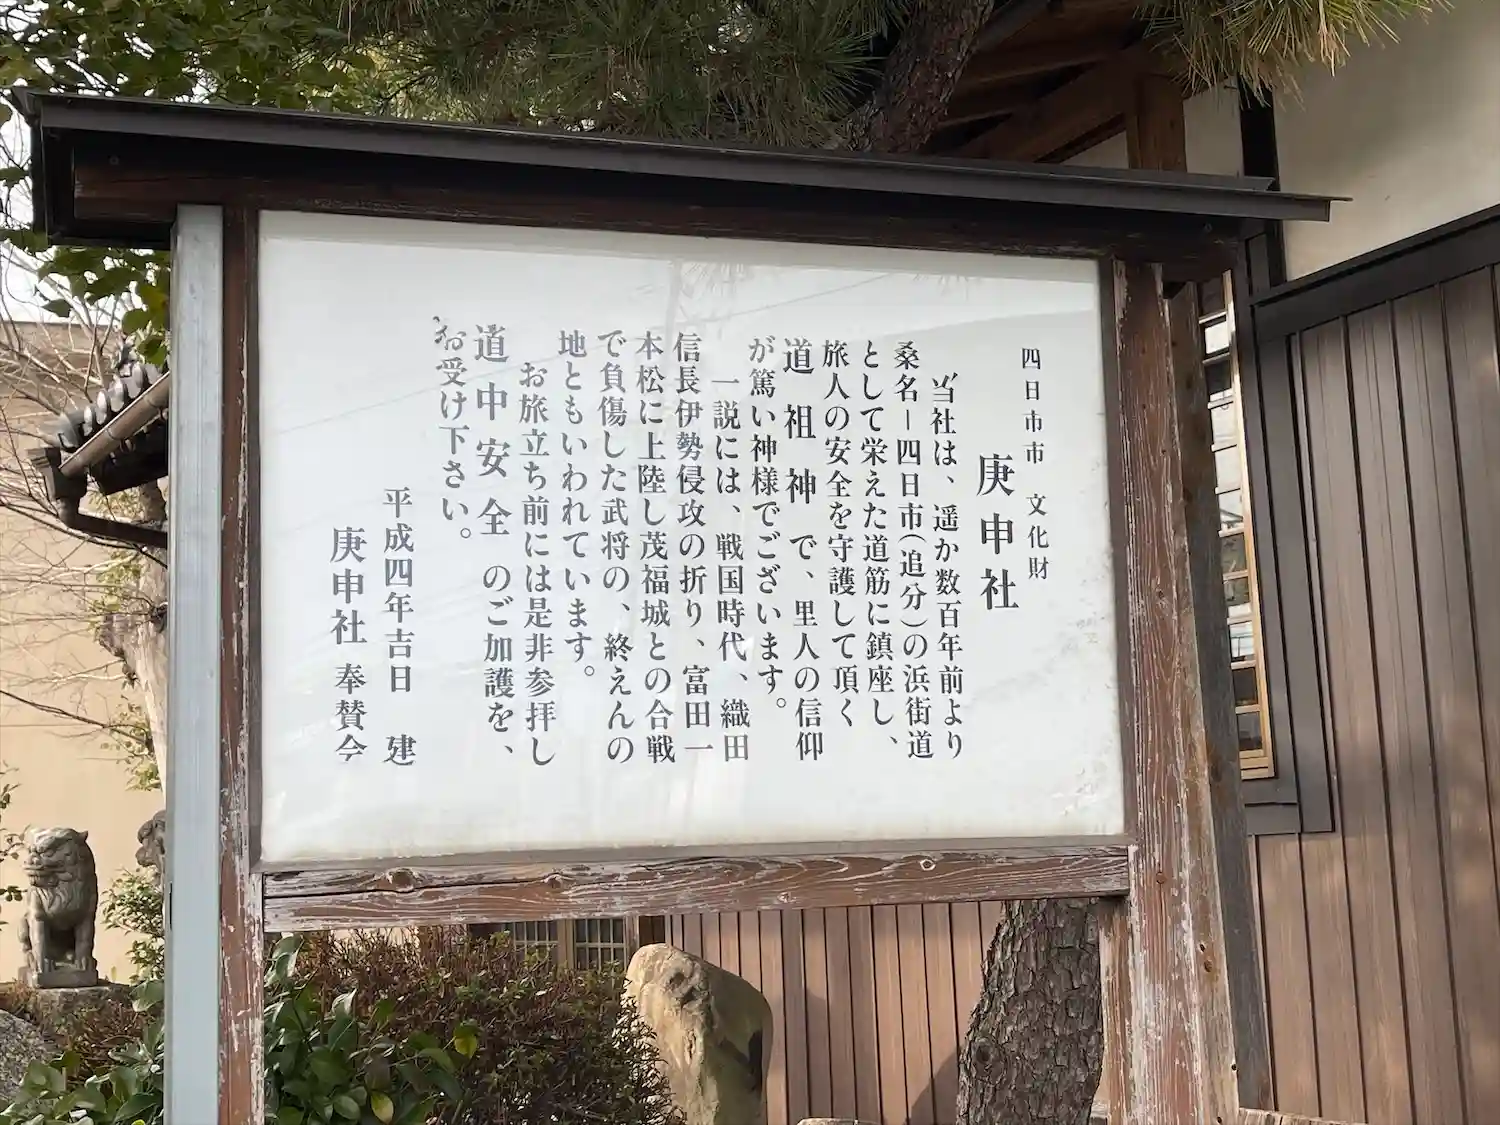 四日市市 文化財
庚申社
当社は、遥か数百年前より
桑名ー四日市(追分)の浜街道
として栄えた道筋に鎮座し、
旅人の安全を守護して頂く
道祖神で、里人の信仰
が篤い神様でございます。
一説には、戦国時代、織田
信長伊勢侵攻の折り、富田一
本松に上陸し茂福城との合戦
で負傷した武将の、終えんの
地ともいわれています。
お旅立ち前には是非参拝し
道中安全のご加護を、
お受け下さい。
平成四年吉日 建
庚申社 奉賛会